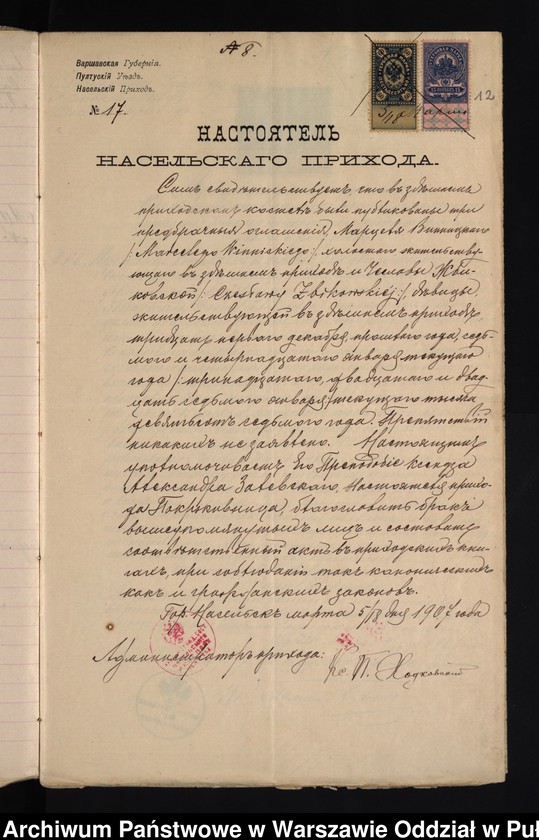 № 8.
12
Варшавская Губернія.
Пултускій Уѣздъ.
Насельскій Приходъ.
№ 17.
НАСТОЯТЕЛЬ
НАСЕЛЬСКАГО ПРИХОДА.
Симъ свидѣтельствуетъ, что въ здѣшнемъ
приходскомъ костелѣ были публикованы три
предбрачныя оглашенія, Марцелія Винницкаго
/: Marcelego Winnickiego :/ холостаго жительству-
ющаго въ здѣшнемъ приходѣ и Чеславы Жби-
ковской /: Czesławy Zbikowskiej :/ дѣвицы,
жительствующей въ здѣшнемъ приходѣ,
тридцать перваго декабря прошлаго года, седь-
мого и четырнадцатаго января текущаго
года /: тринадцатаго, двадцатаго и двад-
цать седьмого января :/ текущаго тысяча
девятьсотъ седьмого года. Препятствій
никакихъ не заявлено. Настоящимъ
уполномочиваетъ Его Преподобіе ксендза
Александра Заѣвскаго, Настоятеля прихо-
да Покрживница, благословить бракъ
вышеупомянутыхъ лицъ и составить
соотвѣтственный актъ въ приходскихъ кни-
гахъ, при соблюденіи такъ каноническихъ
какъ и гражданскихъ законовъ.
Гор. Насельскъ марта 5/18 дня 1907 года
Администраторъ прихода:
кс. П. Ходковскій
Archiwum Państwowe w Warszawie Oddział w Puł